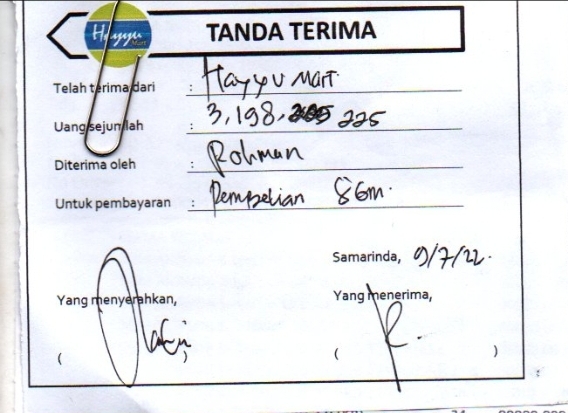 Hayyu
Mart
TANDA TERIMA
Telah terima dari : Hayyu Mart
Uang sejumlah : 3,198, 225
Diterima oleh : Rohman
Untuk pembayaran : Pembelian 86m.
Samarinda, 9/7/22.
Yang menyerahkan, Yang menerima,
( ) ( )